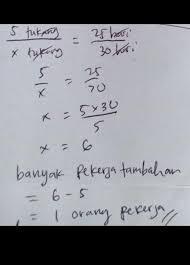 5 tukang / x tukang = 25 hari / 30 hari
5 / x = 25 / 30
x = 5x30 / 5
x = 6
banyak pekerja tambahan
= 6 - 5
= 1 orang pekerja //